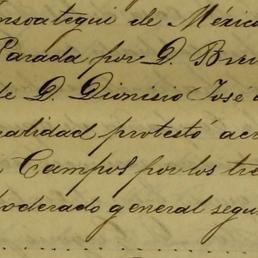 nsoategui de México
Parada por D. Bru
de D. Dionisio José
nalidad protestó acr
Campos por los tre
poderado general segu